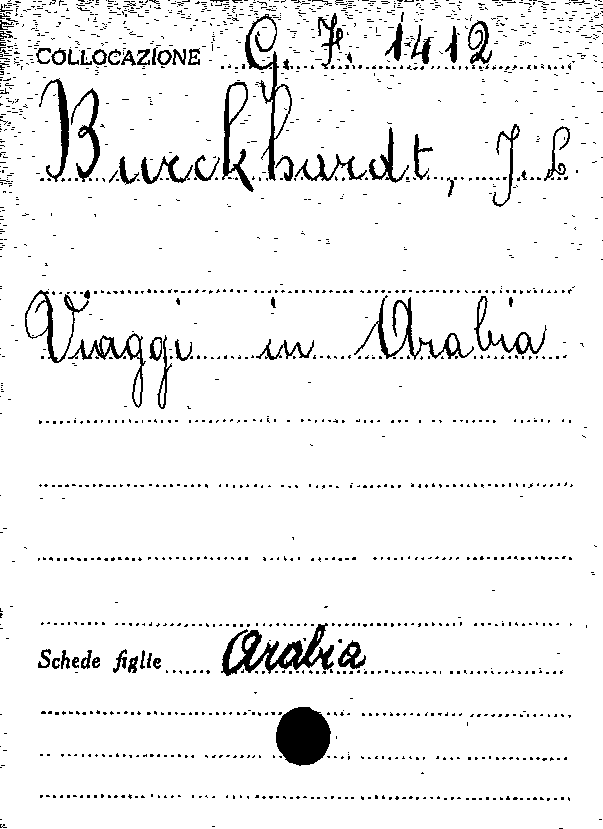 COLLOCAZIONE G. F. 1412
Burckhardt, J. L.
Viaggi in Arabia
Schede figlie Arabia